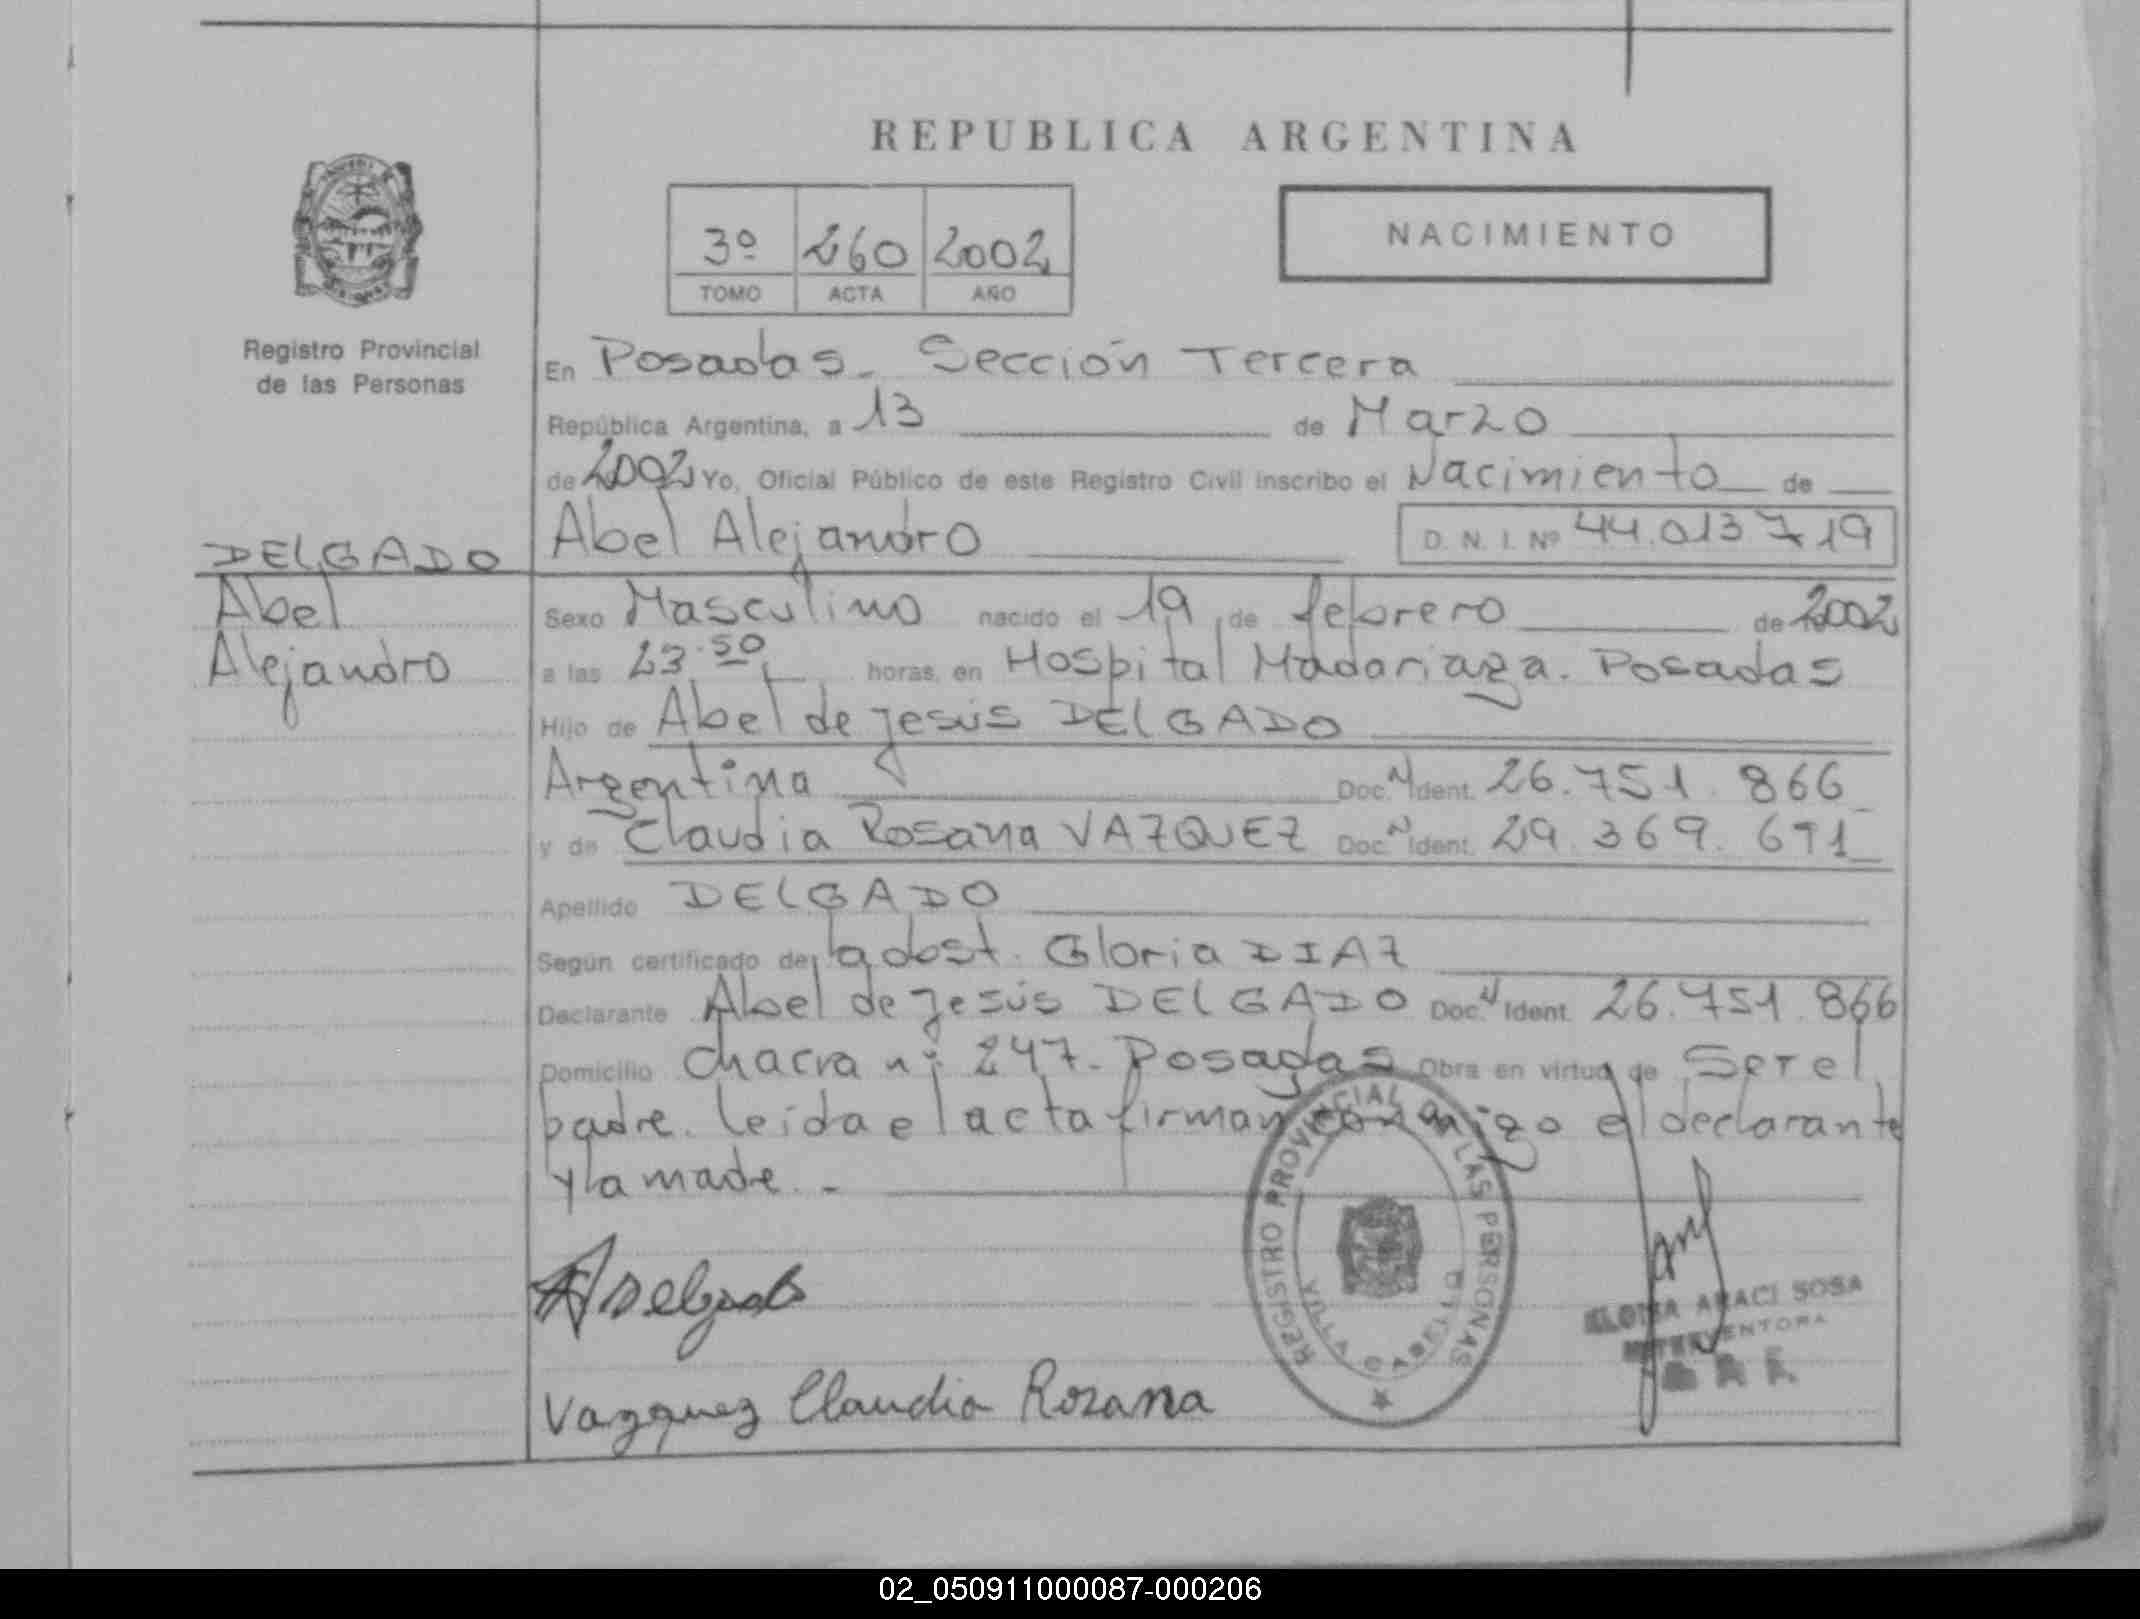 REPUBLICA ARGENTINA
3º 260 2002
TOMO ACTA AÑO
NACIMIENTO
Registro Provincial
de las Personas
En Posadas - Sección Tercera
República Argentina, a 13 de Marzo
de 2002 Yo, Oficial Público de este Registro Civil inscribo el Nacimiento de
Abel Alejandro D. N. I. Nº 44.013.719
DELGADO
Abel
Alejandro
Sexo Masculino nacido el 19 de febrero de 2002
a las 23.50 horas, en Hospital Madariaga. Posadas
Hijo de Abel de Jesús DELGADO
Argentina Doc. N Ident. 26.751.866
y de Claudia Rosana VAZQUEZ Doc. N Ident. 29.369.691
Apellido DELGADO
Según certificado de la obst. Gloria DIAZ
Declarante Abel de Jesús DELGADO Doc. N Ident. 26.751.866
Domicilio Chacra nº 247 - Posadas Obra en virtud de Ser el
padre. leída el acta firman conmigo el declarante
y la madre. -
REGISTRO PROVINCIAL DE LAS PERSONAS
VILLA CABELLO
A Delgado
ARACI SOSA
INTERVENTORA
Vazquez Claudia Rozana
02_050911000087-000206